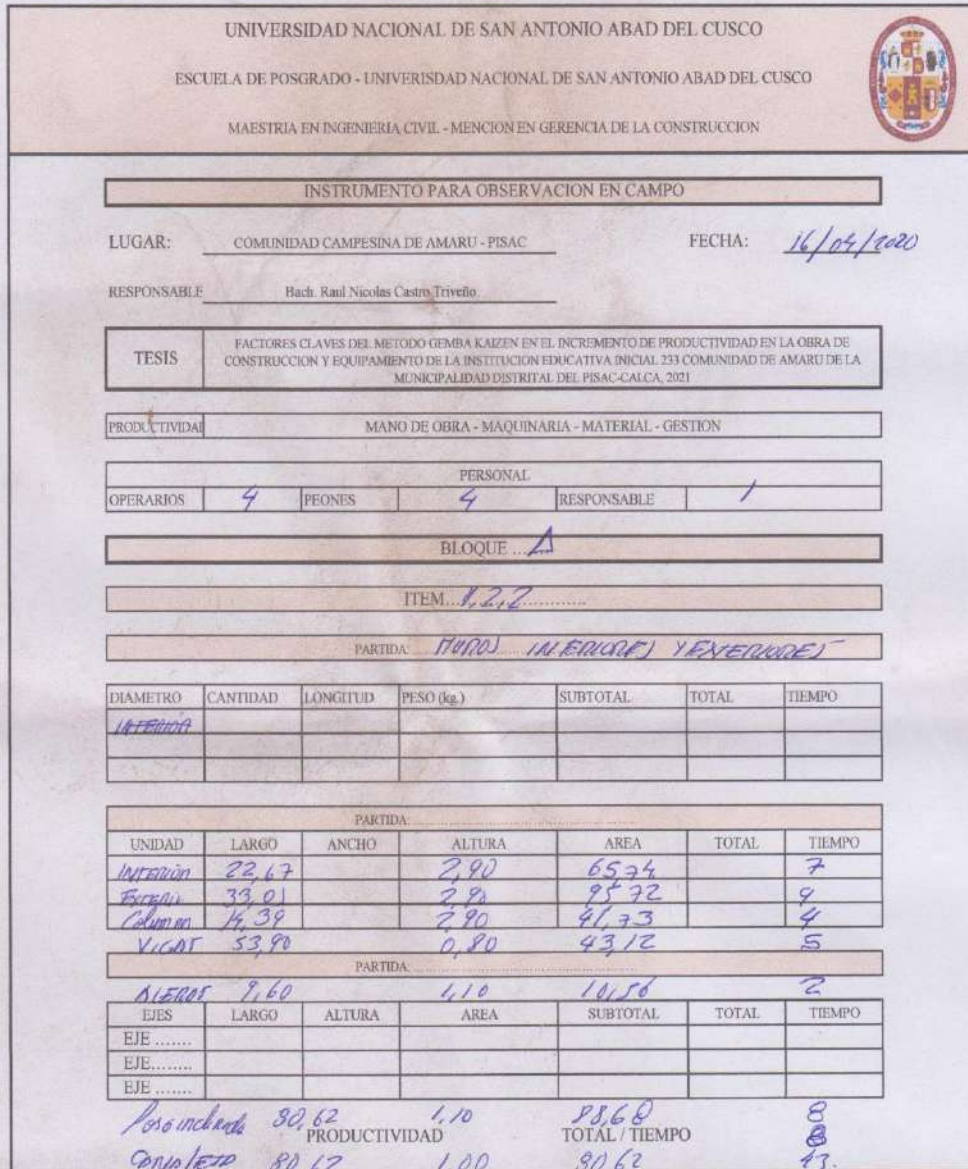 UNIVERSIDAD NACIONAL DE SAN ANTONIO ABAD DEL CUSCO
ESCUELA DE POSGRADO - UNIVERISDAD NACIONAL DE SAN ANTONIO ABAD DEL CUSCO
MAESTRIA EN INGENIERIA CIVIL - MENCION EN GERENCIA DE LA CONSTRUCCION
INSTRUMENTO PARA OBSERVACION EN CAMPO
LUGAR: COMUNIDAD CAMPESINA DE AMARU - PISAC FECHA: 16/04/2020
RESPONSABLE Bach. Raul Nicolas Castro Triveño.
TESIS FACTORES CLAVES DEL METODO GEMBA KAIZEN EN EL INCREMENTO DE PRODUCTIVIDAD EN LA OBRA DE
CONSTRUCCION Y EQUIPAMIENTO DE LA INSTITUCION EDUCATIVA INICIAL 233 COMUNIDAD DE AMARU DE LA
MUNICIPALIDAD DISTRITAL DEL PISAC-CALCA, 2021
PRODUCTIVIDAD MANO DE OBRA - MAQUINARIA - MATERIAL - GESTION
PERSONAL
OPERARIOS 4 PEONES 4 RESPONSABLE 1
BLOQUE ... A
ITEM.... 2.2
PARTIDA: MUROS INTERIORES Y EXTERIORES
DIAMETRO CANTIDAD LONGITUD PESO (kg.) SUBTOTAL TOTAL TIEMPO
INTERIOR
PARTIDA:
UNIDAD LARGO ANCHO ALTURA AREA TOTAL TIEMPO
INTERIOR 22,67 2,90 65,74 7
33,01 2,90 95,72
Column 14,39 2,90 41,73 4
VIGAS 53,90 0,80 43,12 5
PARTIDA:
9,60 1,10 10,56 2
EJES LARGO ALTURA AREA SUBTOTAL TOTAL TIEMPO
EJE .......
EJE........
EJE .......
80,62 1,10 88,68 8
PRODUCTIVIDAD TOTAL / TIEMPO
80,62 1,00 80,62